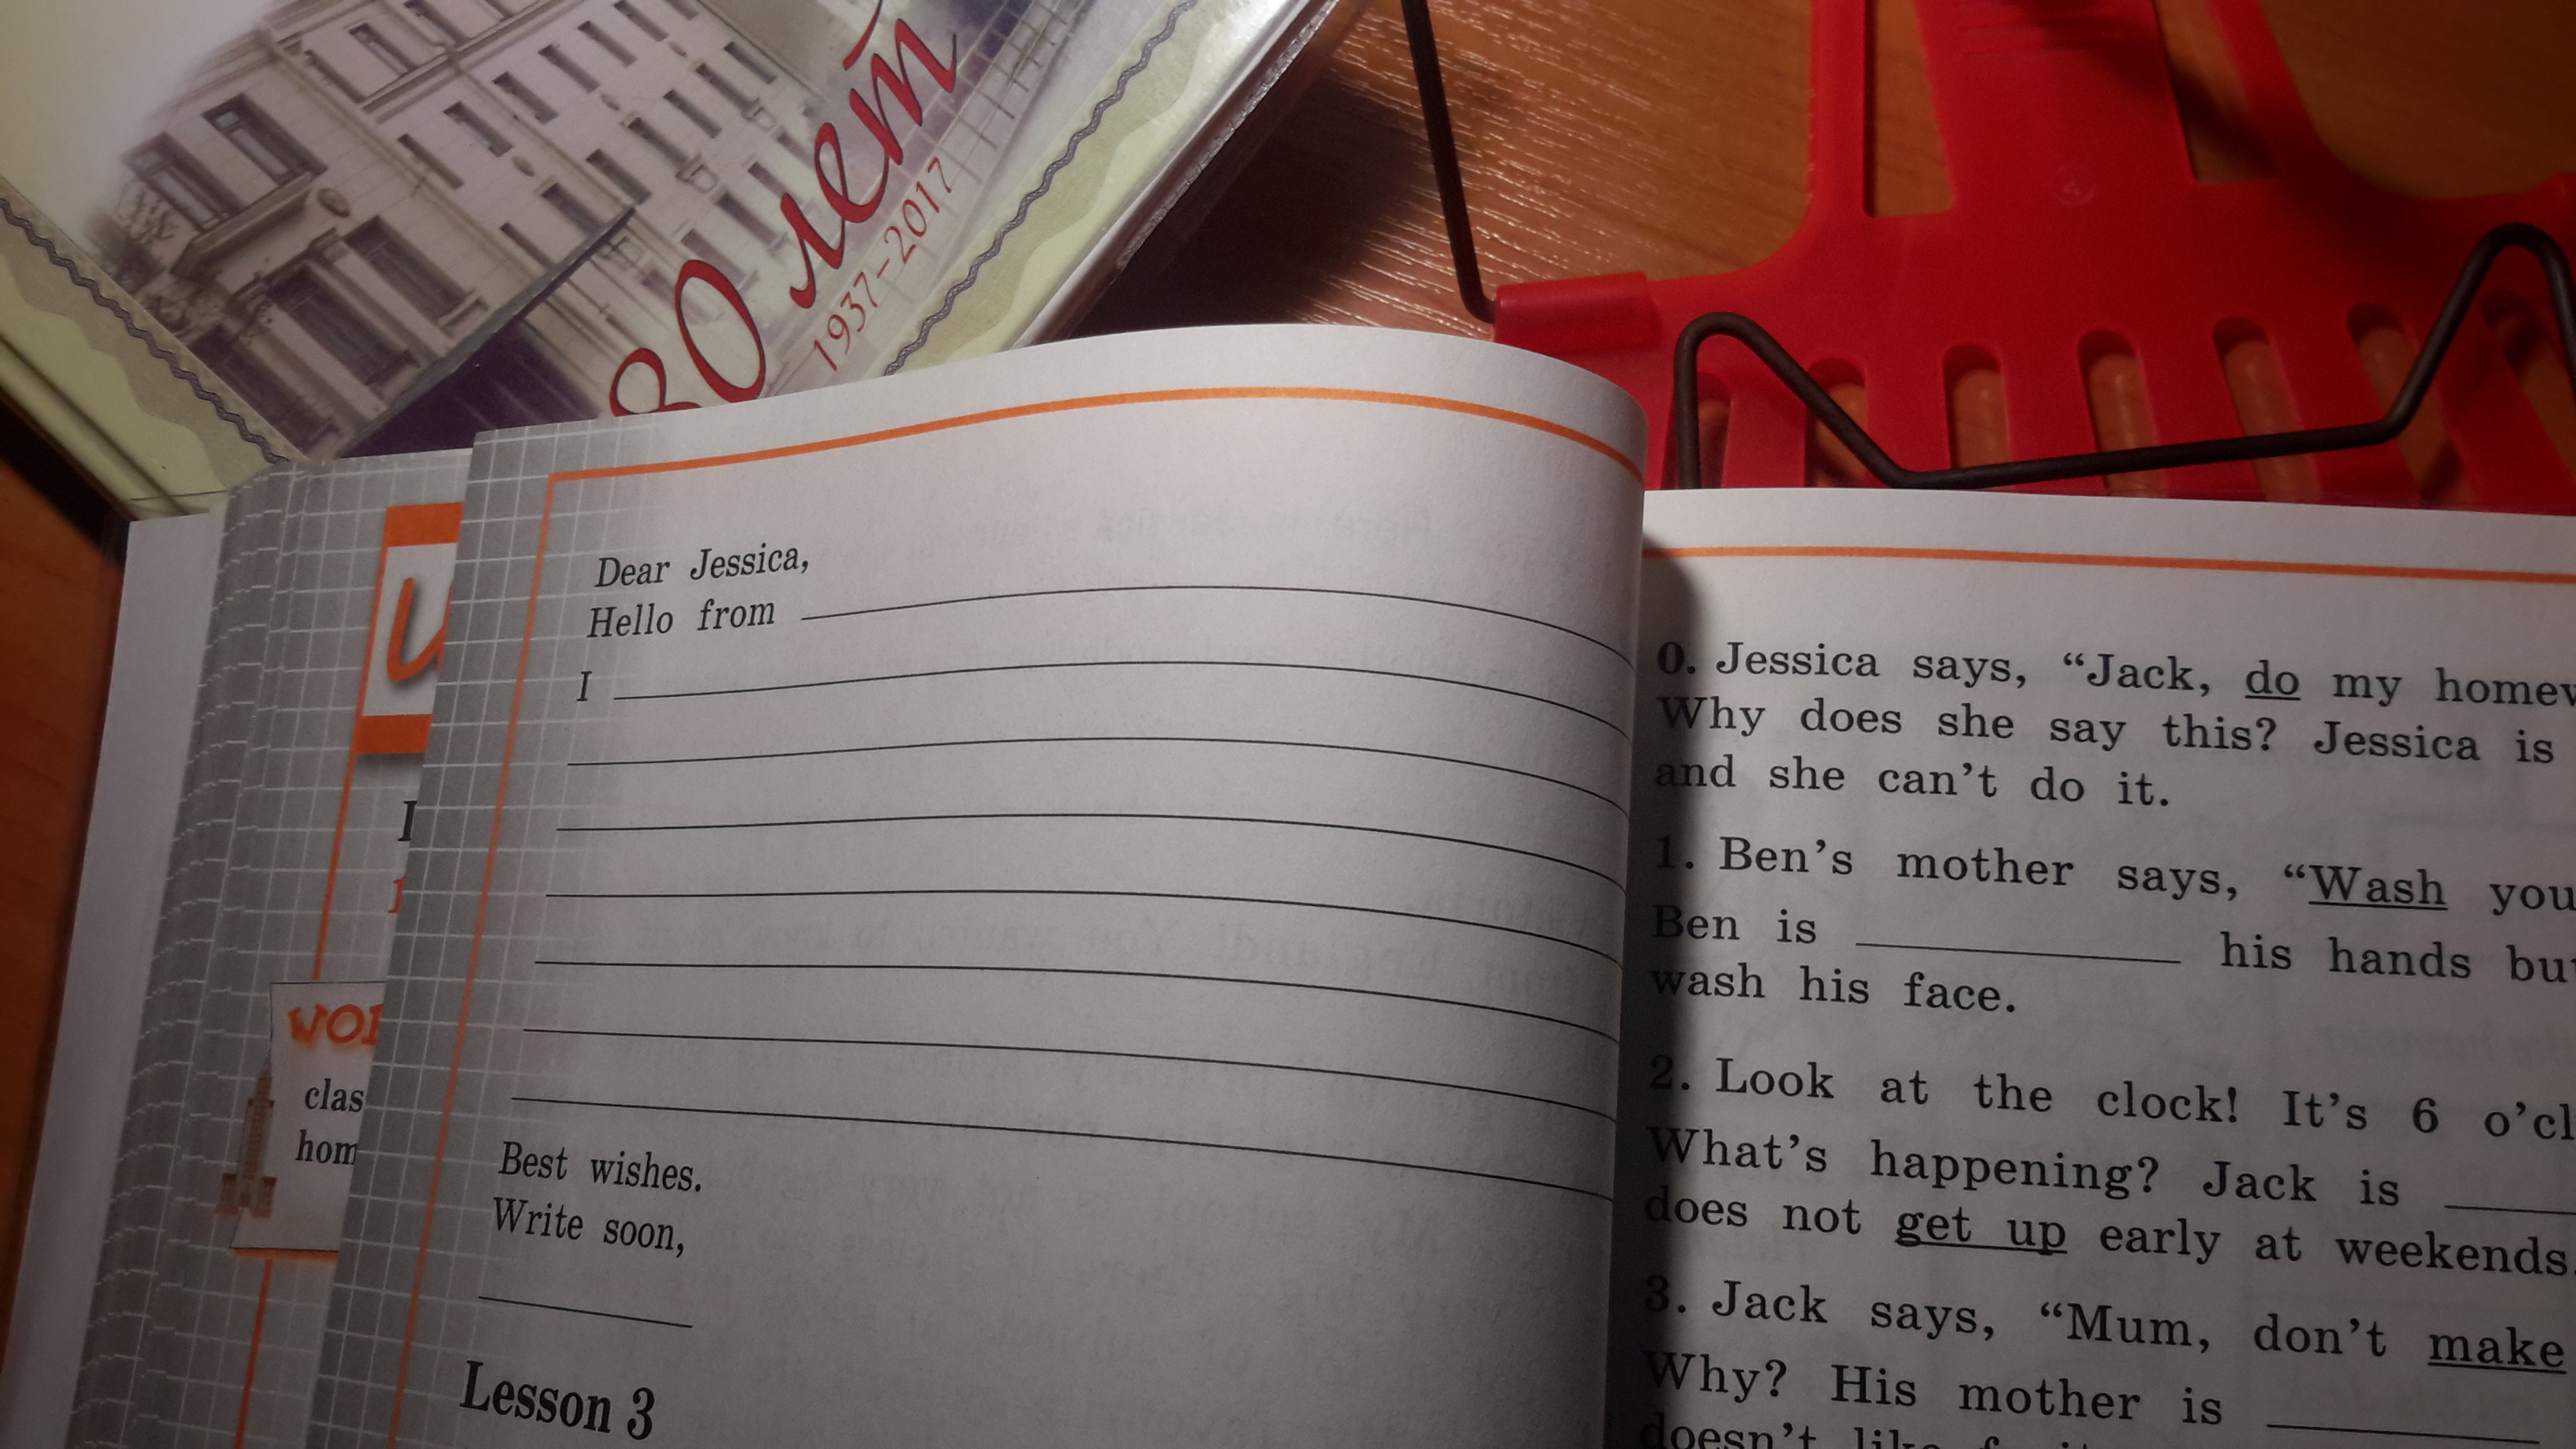 80 лет
1937–2017
Dear Jessica,
Hello from
I
Best wishes.
Write soon,
Lesson 3
0. Jessica says, “Jack, do my
Why does she say this? Jessica is
and she can’t do it.
1. Ben’s mother says, “Wash
Ben is his hands
wash his face.
2. Look at the clock! It’s 6
What’s happening? Jack is
does not get up early at weekends.
3. Jack says, “Mum, don’t make
Why? His mother is
doesn’t